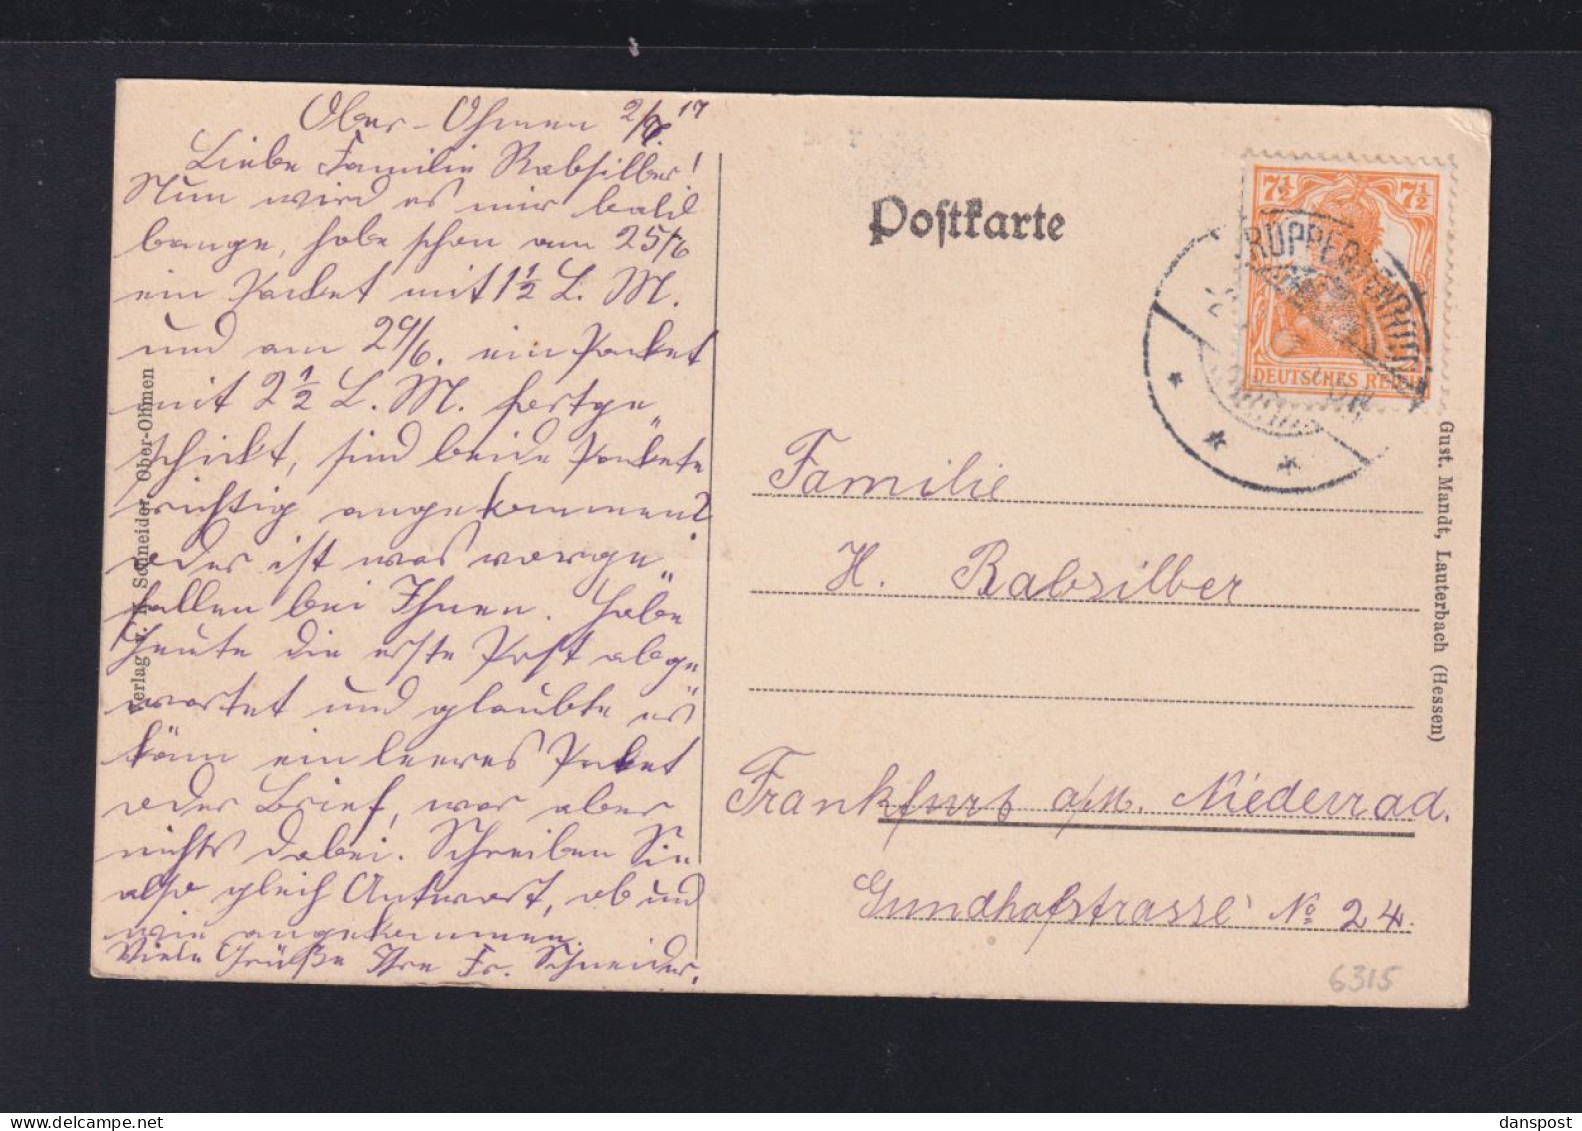 Ober-Ohmen 2/7. 17
Liebe Familie Rabsilber!
Nun wird es mir bald
bange, habe schon am 25/6
ein Packet mit 1½ L. M.
und am 29/6. ein Packet
mit 2½ L. M. fortge„
schickt, sind beide Packete
richtig angekommen?
oder ist was vorge„
fallen bei Ihnen. Habe
heute die erste Post abge„
wartet und glaubte es
käm ein leeres Packet
oder Brief, war aber
nichts dabei. Schreiben Sie
also gleich Antwort, ob und
wie angekommen.
Viele Grüße Ihre Fr. Schneider.
Verlag v. H. Schneider, Ober-Ohmen
Postkarte
7½ 7½
DEUTSCHES REICH
RUPPERTENROD
Familie
H. Rabsilber
Frankfurt a/M. Niederrad.
Gundhofstrasse No 24.
Gust. Mandt, Lauterbach (Hessen)
6315
danspost